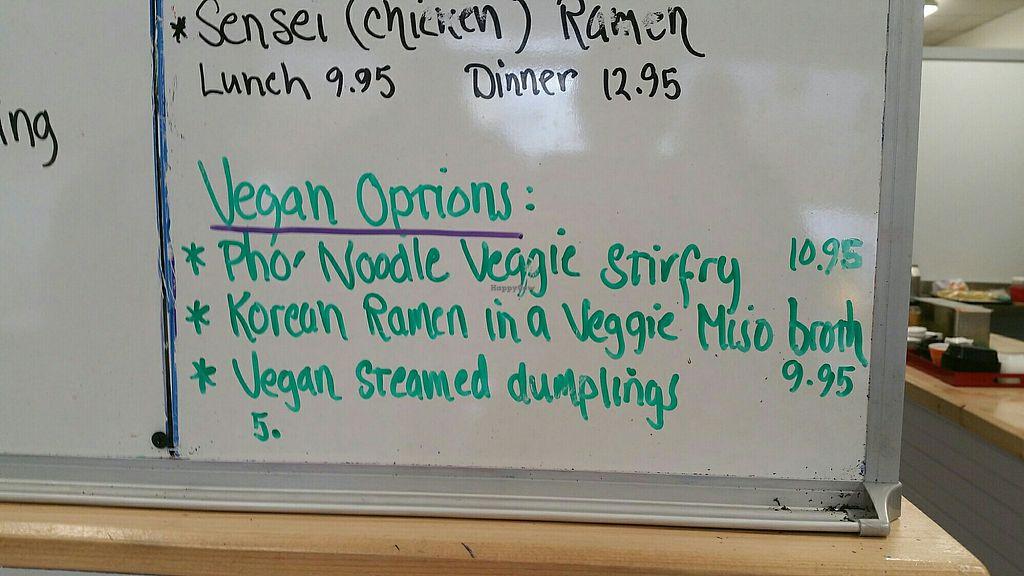 * Sensei (chicken) Ramen
Lunch 9.95 Dinner 12.95
ing
Vegan Options:
* Pho Noodle Veggie Stirfry 10.95
HappyCow
* Korean Ramen in a Veggie Miso broth
9.95
* Vegan Steamed dumplings
5.